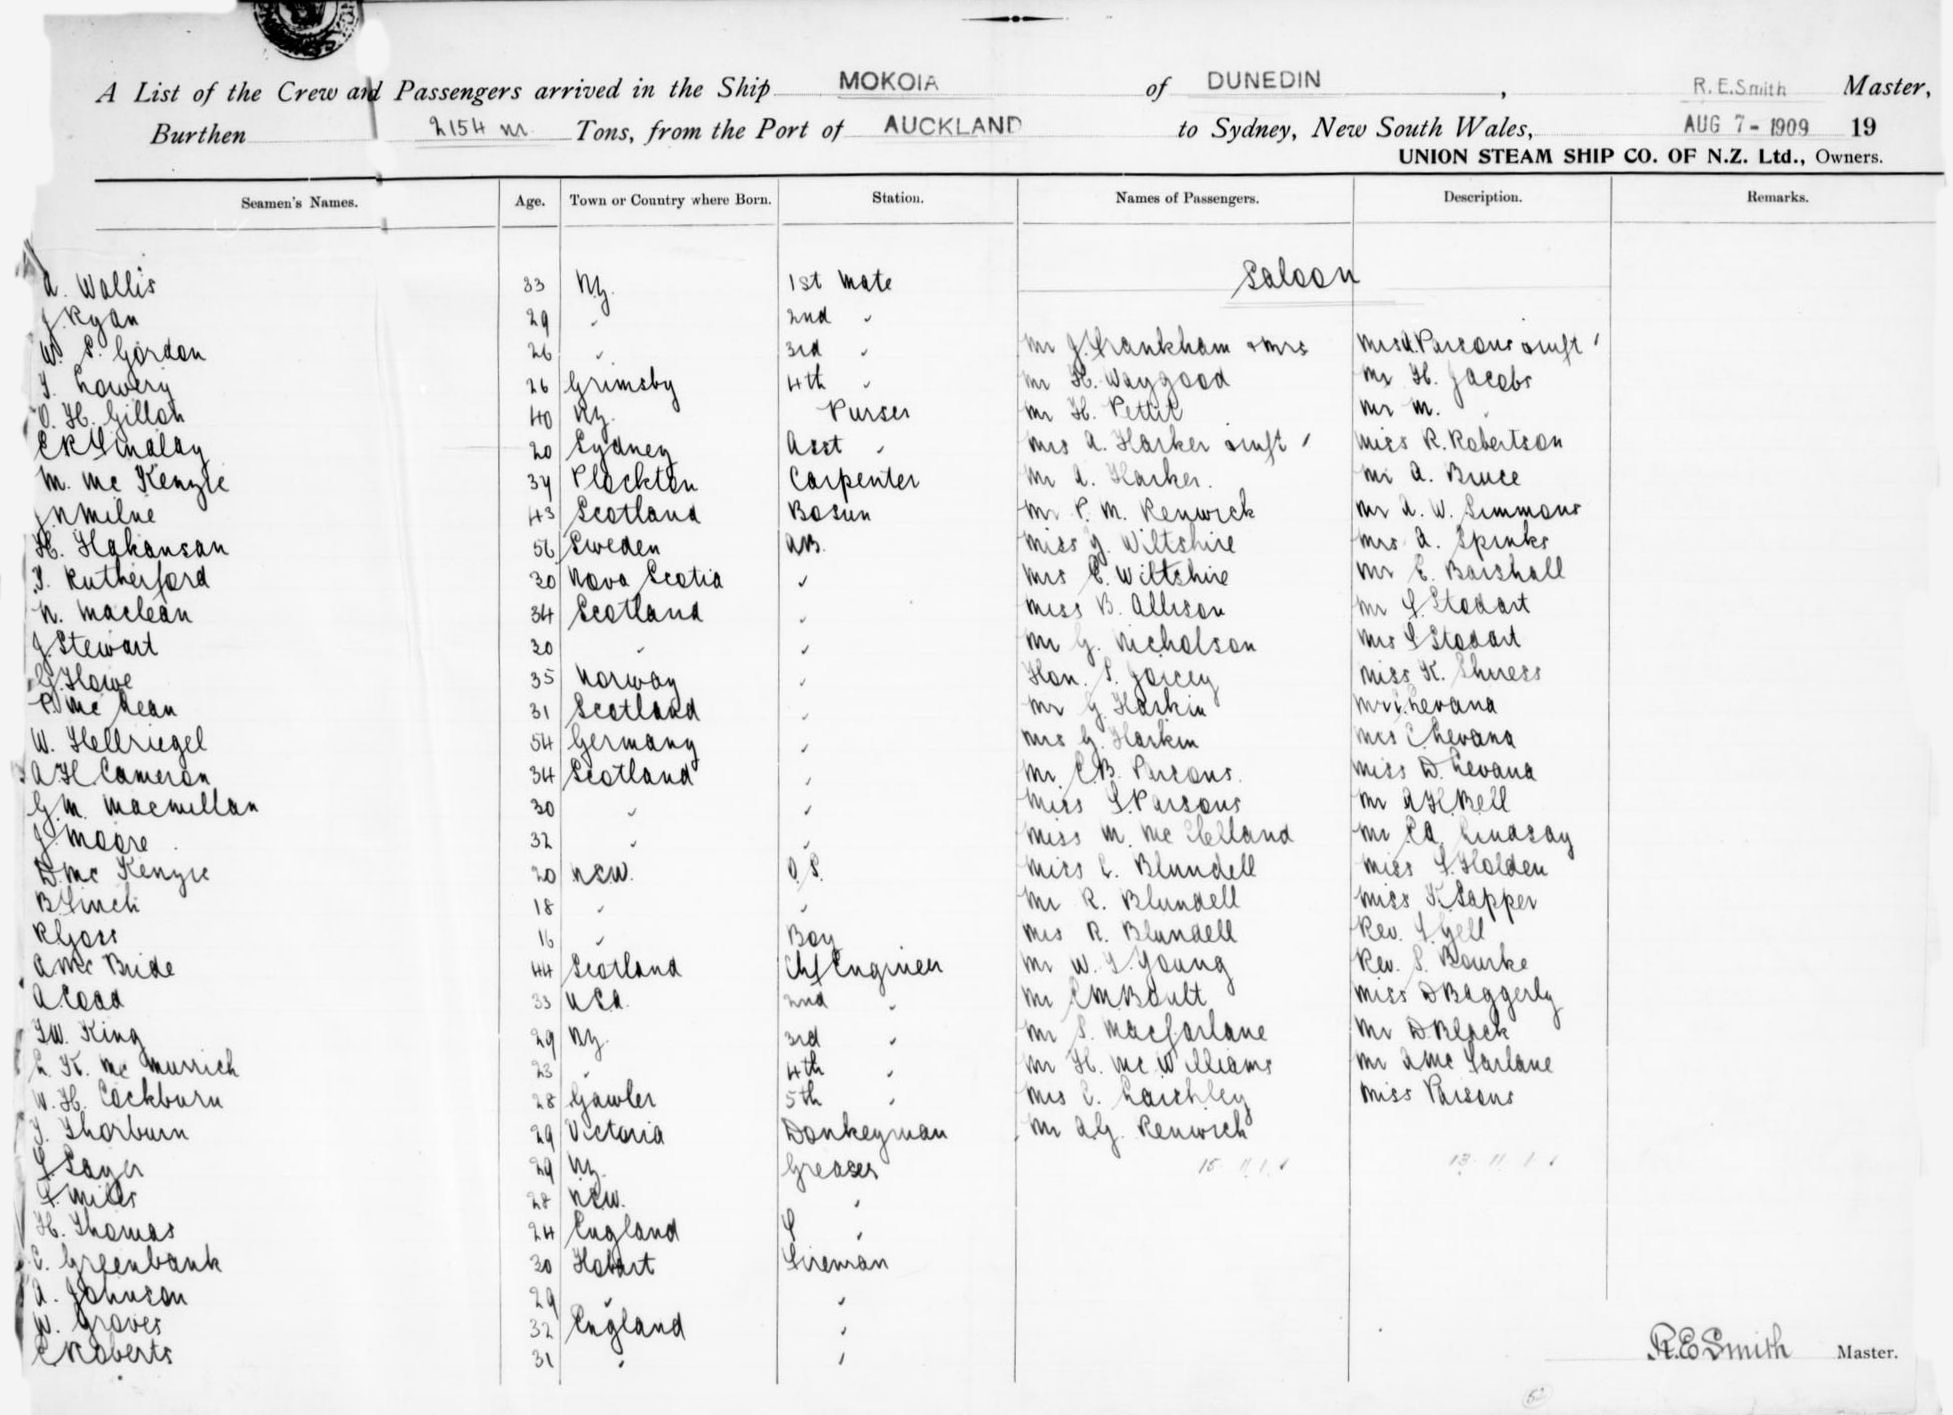 A List of the Crew and Passengers arrived in the Ship MOKOIA of DUNEDIN , R.E.Smith Master,
Burthen 2154 Tons, from the Port of AUCKLAND to Sydney, New South Wales, AUG 7 - 1909 19
UNION STEAM SHIP CO. OF N.Z. Ltd., Owners.
Seamen's Names. Age. Town or Country where Born. Station. Names of Passengers. Description. Remarks.
Saloon
A. Wallis 33 NZ. 1st Mate
J. Ryan 29 " 2nd "
W. S. Gordon 26 " 3rd " Mr J. Frankham + Mrs Parsons
T. Lowery 26 Grimsby 4th " Mr H. Waygood Mr H. Jacobs
O. H. Gilloh 40 NZ. Purser Mr H. Pettit Mr M. "
Findlay 20 Sydney Asst " Mrs A. Harker Miss R. Robertson
M. Mc Kenzie Plockton Carpenter Mr A. Harker. Mr A. Bruce
J N Milne 43 Scotland Bosun Mr P. M. Renwick Mr A. W. Simmons
H. Hakansan 56 Sweden AB. Miss G. Wiltshire Mrs A. Spinks
T. Rutherford 30 Nova Scotia " Mrs E. Wiltshire Mr E. Barshall
N. Maclean 34 Scotland " Miss B. Allison Mr F Stodart
J. Stewart 30 " " Mr G. Nicholson Mrs F Stodart
G. Howe 35 Norway " Hon. S. Joicey Miss K.
Mc Lean 31 Scotland " Mr G. Harkin Levana
W. Hellriegel 54 Germany " Mrs G. Harkin Levana
A H Cameron 34 Scotland " Mr C. B. Parsons. Miss D. Levana
G. M. Macmillan 30 " " Miss F. Parsons Mr A H Bell
J. Moore 32 " " Miss M. Mc Clelland Mr Lindsay
D. Mc Kenzie 20 NSW. O.S. Miss C. Blundell Miss F. Holden
B Finch 18 " " Mr R. Blundell Miss K Sapper
R Goss 16 " Boy Mrs R. Blundell Rev. F. Gell
A Mc Bride 44 Scotland Chf Engineer Mr W. F. Young Rev. S. Bourke
A Coad 33 USA. 2nd " Mr C M Boult Miss D Baggerly
T W. King 29 NZ. 3rd " Mr S. Macfarlane Mr D Black
L. K. Mc Murrich 23 " 4th " Mr H. Mc Williams Mr A Mc Farlane
W. H. Cockburn 28 Gawler 5th " Mrs C. Laishley Miss Parsons
T. Thorburn 29 Victoria Donkeyman Mr A. G. Renwick
F. Sayer 29 NZ. Greaser
F. Miles 28 NSW. "
H. Thomas 24 England F "
C. Greenbank 30 Hobart Fireman
A. Johnson 29 " "
W. Groves 32 England "
C Roberts 31 " "
R.E Smith Master.
52